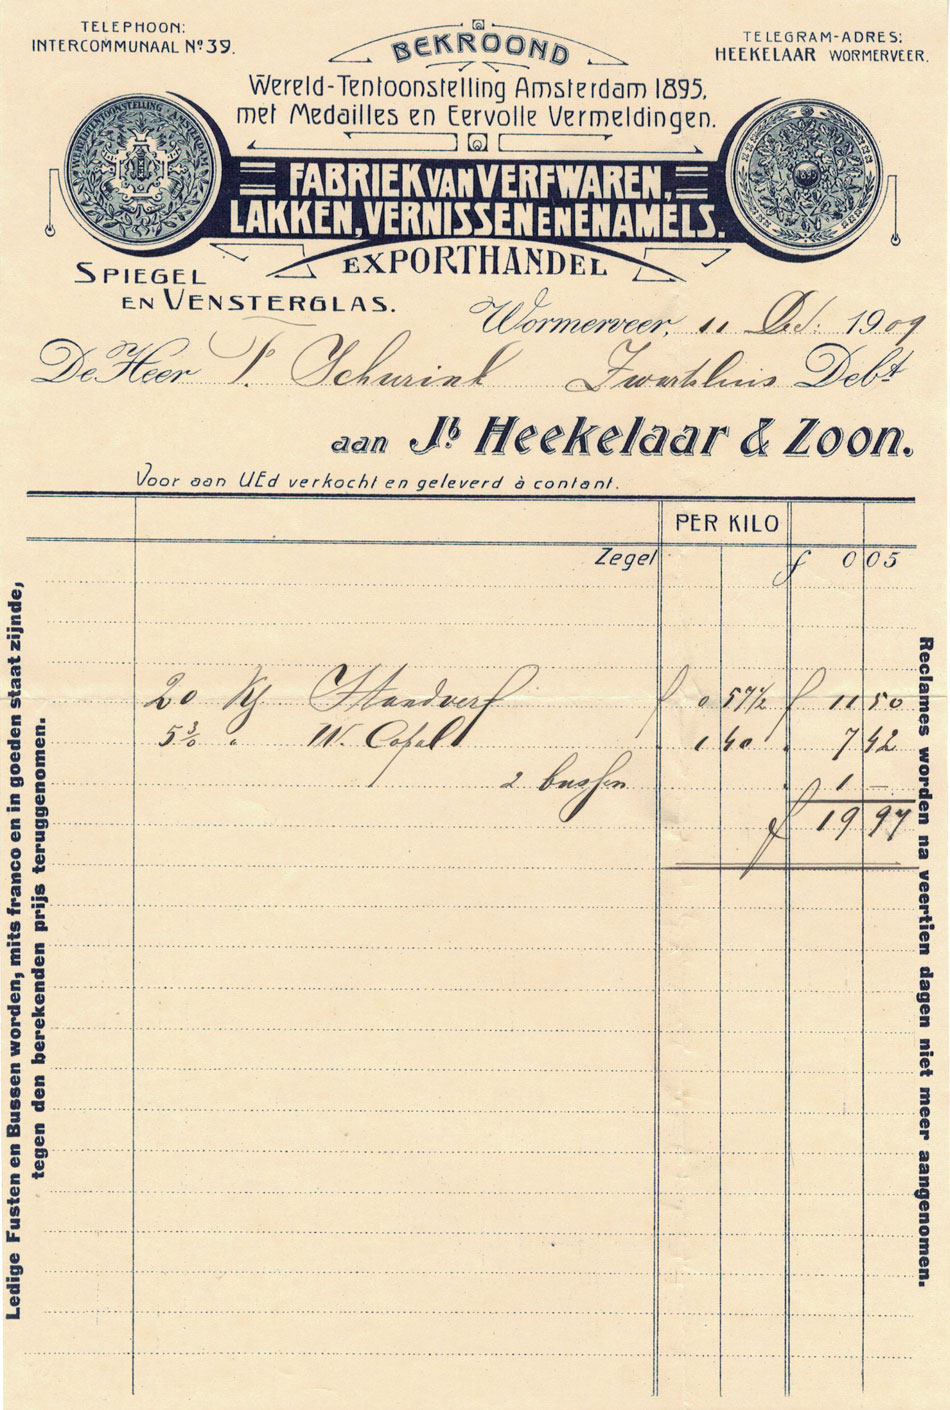 TELEPHOON:
INTERCOMMUNAAL No 39.
TELEGRAM-ADRES:
HEEKELAAR WORMERVEER.
BEKROOND
Wereld-Tentoonstelling Amsterdam 1895,
met Medailles en Eervolle Vermeldingen.
FABRIEK VAN VERFWAREN,
LAKKEN, VERNISSEN EN ENAMELS.
EXPORTHANDEL
SPIEGEL
EN VENSTERGLAS.
Wormerveer, 11 Dec: 1909
De Heer F. Schurink Zwartsluis Debt
aan Jb Heekelaar & Zoon.
Voor aan UEd verkocht en geleverd à contant.
PER KILO
Zegel f 0 05
20 Kg Standverf f 0 57½ f 11 50
5 3/10 " W. Copal 1 40 " 7 42
2 bussen " 1 –
f 19 97
Ledige Fusten en Bussen worden, mits franco en in goeden staat zijnde,
tegen den berekenden prijs teruggenomen.
Reclames worden na veertien dagen niet meer aangenomen.